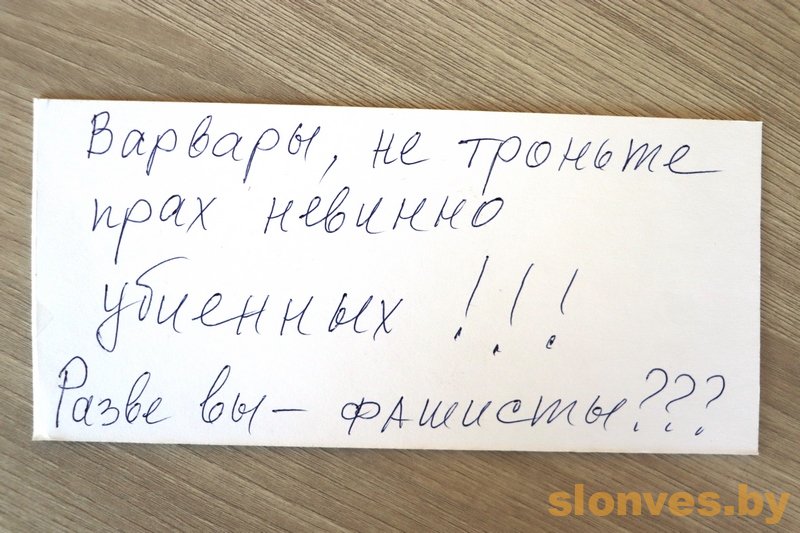 Варвары, не троньте
прах невинно
убиенных !!!
Разве вы – фашисты???
slonves.by